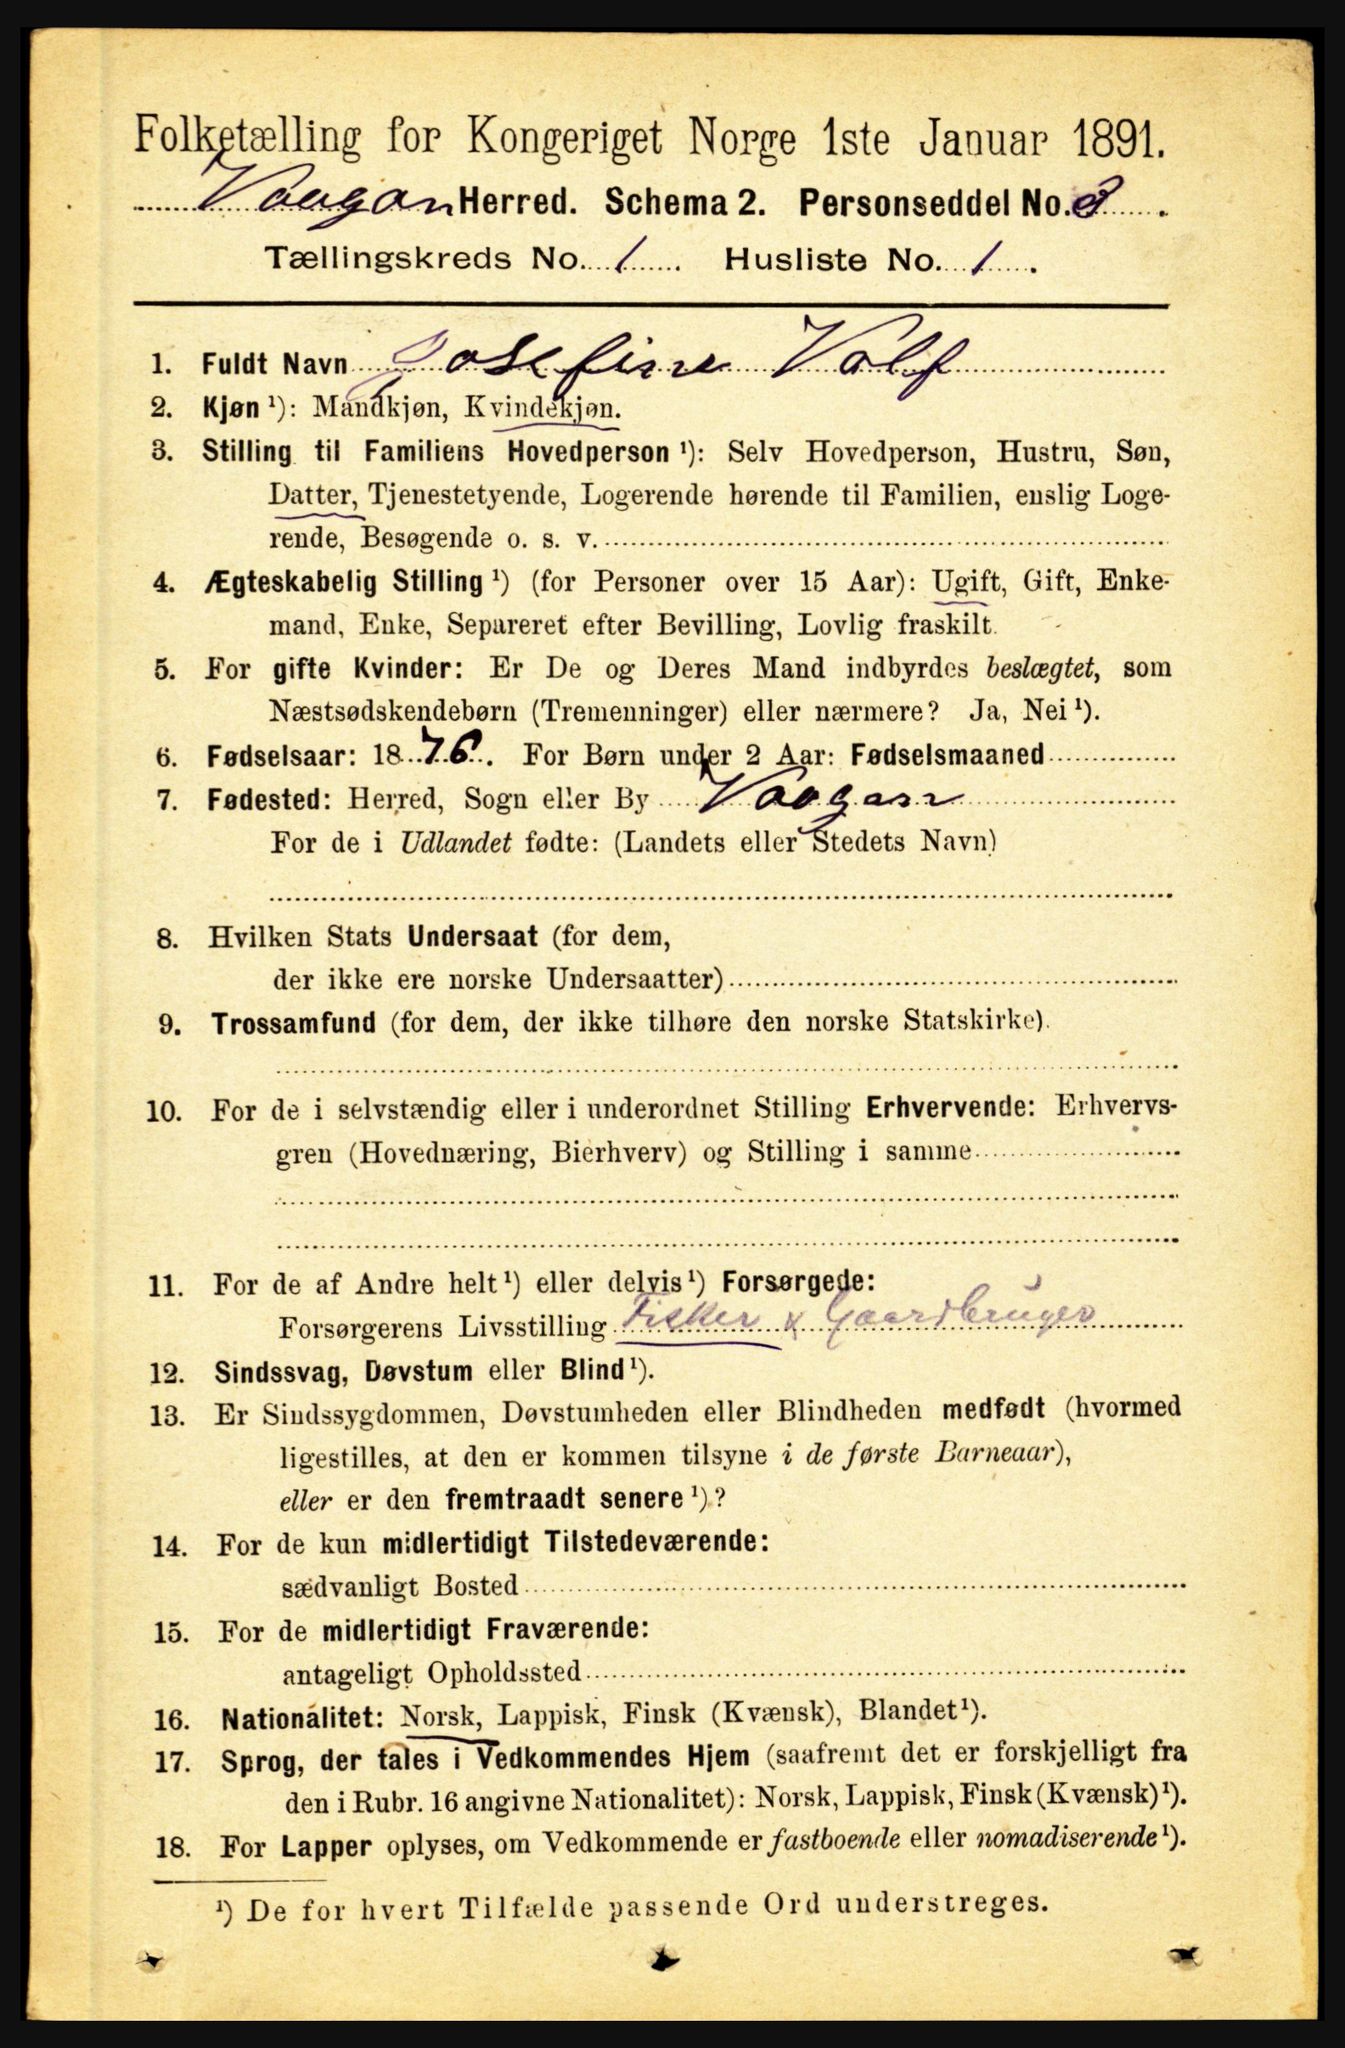 Folketælling for Kongeriget Norge 1ste Januar 1891.
Vaagan Herred. Schema 2. Personseddel No. 3.
Tællingskreds No. 1. Husliste No. 1.
1. Fuldt Navn Josefine Volf
2. Kjøn ¹): Mandkjøn, Kvindekjøn.
3. Stilling til Familiens Hovedperson ¹): Selv Hovedperson, Hustru, Søn,
Datter, Tjenestetyende, Logerende hørende til Familien, enslig Loge-
rende, Besøgende o. s. v.
4. Ægteskabelig Stilling ¹) (for Personer over 15 Aar): Ugift, Gift, Enke-
mand, Enke, Separeret efter Bevilling, Lovlig fraskilt.
5. For gifte Kvinder: Er De og Deres Mand indbyrdes beslægtet, som
Næstsødskendebørn (Tremenninger) eller nærmere? Ja, Nei ¹).
6. Fødselsaar: 1876. For Børn under 2 Aar: Fødselsmaaned
7. Fødested: Herred, Sogn eller By Vaagan
For de i Udlandet fødte: (Landets eller Stedets Navn)
8. Hvilken Stats Undersaat (for dem,
der ikke ere norske Undersaatter)
9. Trossamfund (for dem, der ikke tilhøre den norske Statskirke).
10. For de i selvstændig eller i underordnet Stilling Erhvervende: Erhvervs-
gren (Hovednæring, Bierhverv) og Stilling i samme
11. For de af Andre helt ¹) eller delvis ¹) Forsørgede:
Forsørgerens Livsstilling Fisker & Gaardbruger
12. Sindssvag, Døvstum eller Blind ¹).
13. Er Sindssygdommen, Døvstumheden eller Blindheden medfødt (hvormed
ligestilles, at den er kommen tilsyne i de første Barneaar),
eller er den fremtraadt senere ¹)?
14. For de kun midlertidigt Tilstedeværende:
sædvanligt Bosted
15. For de midlertidigt Fraværende:
antageligt Opholdssted
16. Nationalitet: Norsk, Lappisk, Finsk (Kvænsk), Blandet ¹).
17. Sprog, der tales i Vedkommendes Hjem (saafremt det er forskjelligt fra
den i Rubr. 16 angivne Nationalitet): Norsk, Lappisk, Finsk (Kvænsk) ¹).
18. For Lapper oplyses, om Vedkommende er fastboende eller nomadiserende ¹).
¹) De for hvert Tilfælde passende Ord understreges.